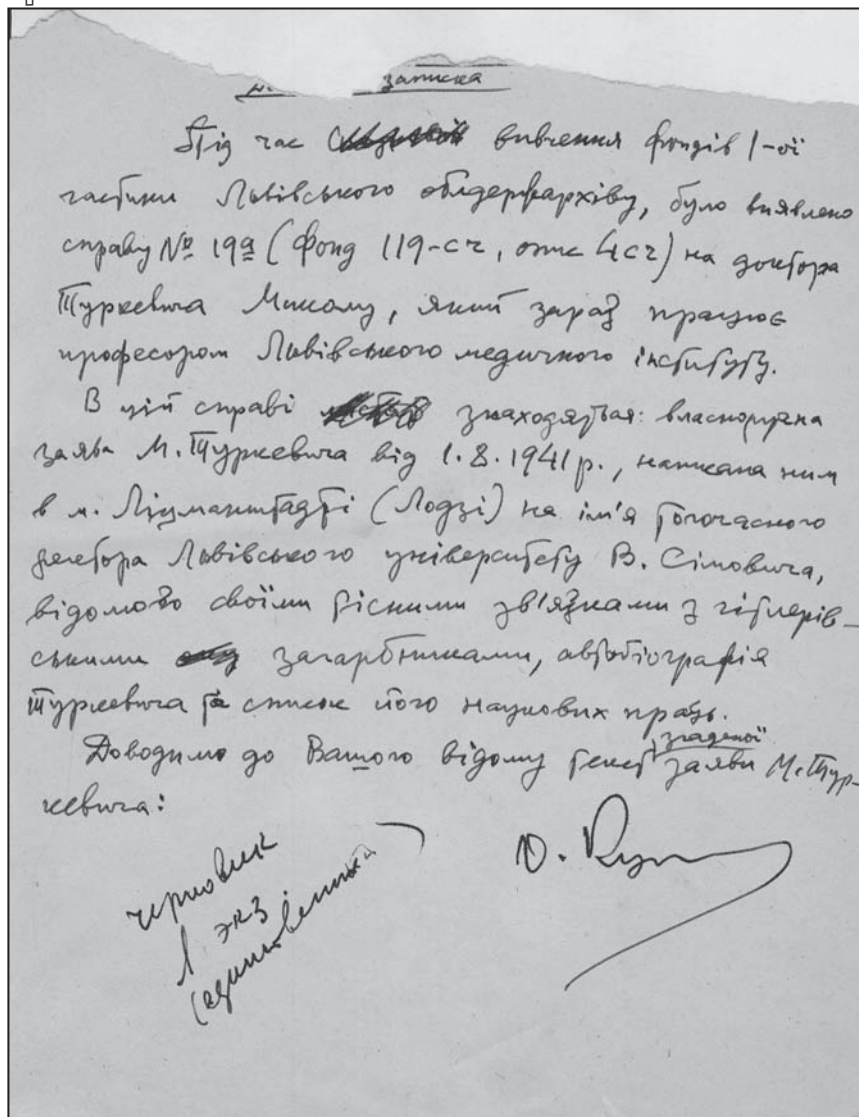 записка
Під час вивчення фондів 1-ої
частини Львівського облдержархіву, було виявлено
справу № 19а (фонд 119-сч, опис 4сч) на доктора
Туркевича Миколу, який зараз працює
професором Львівського медичного інституту.
В цій справі знаходяться: власноручна
заява М. Туркевича від 1.8.1941 р., написана ним
в м. Ліцманштадті (Лодзі) на ім'я тогочасного
ректора Львівського університету В. Сімовича,
відомого своїми тісними зв'язками з гітлерів-
ськими загарбниками, автобіографія
Туркевича та список його наукових праць.
згаданої
Доводимо до Вашого відому текст заяви М. Тур-
кевича:
черновик
1 экз